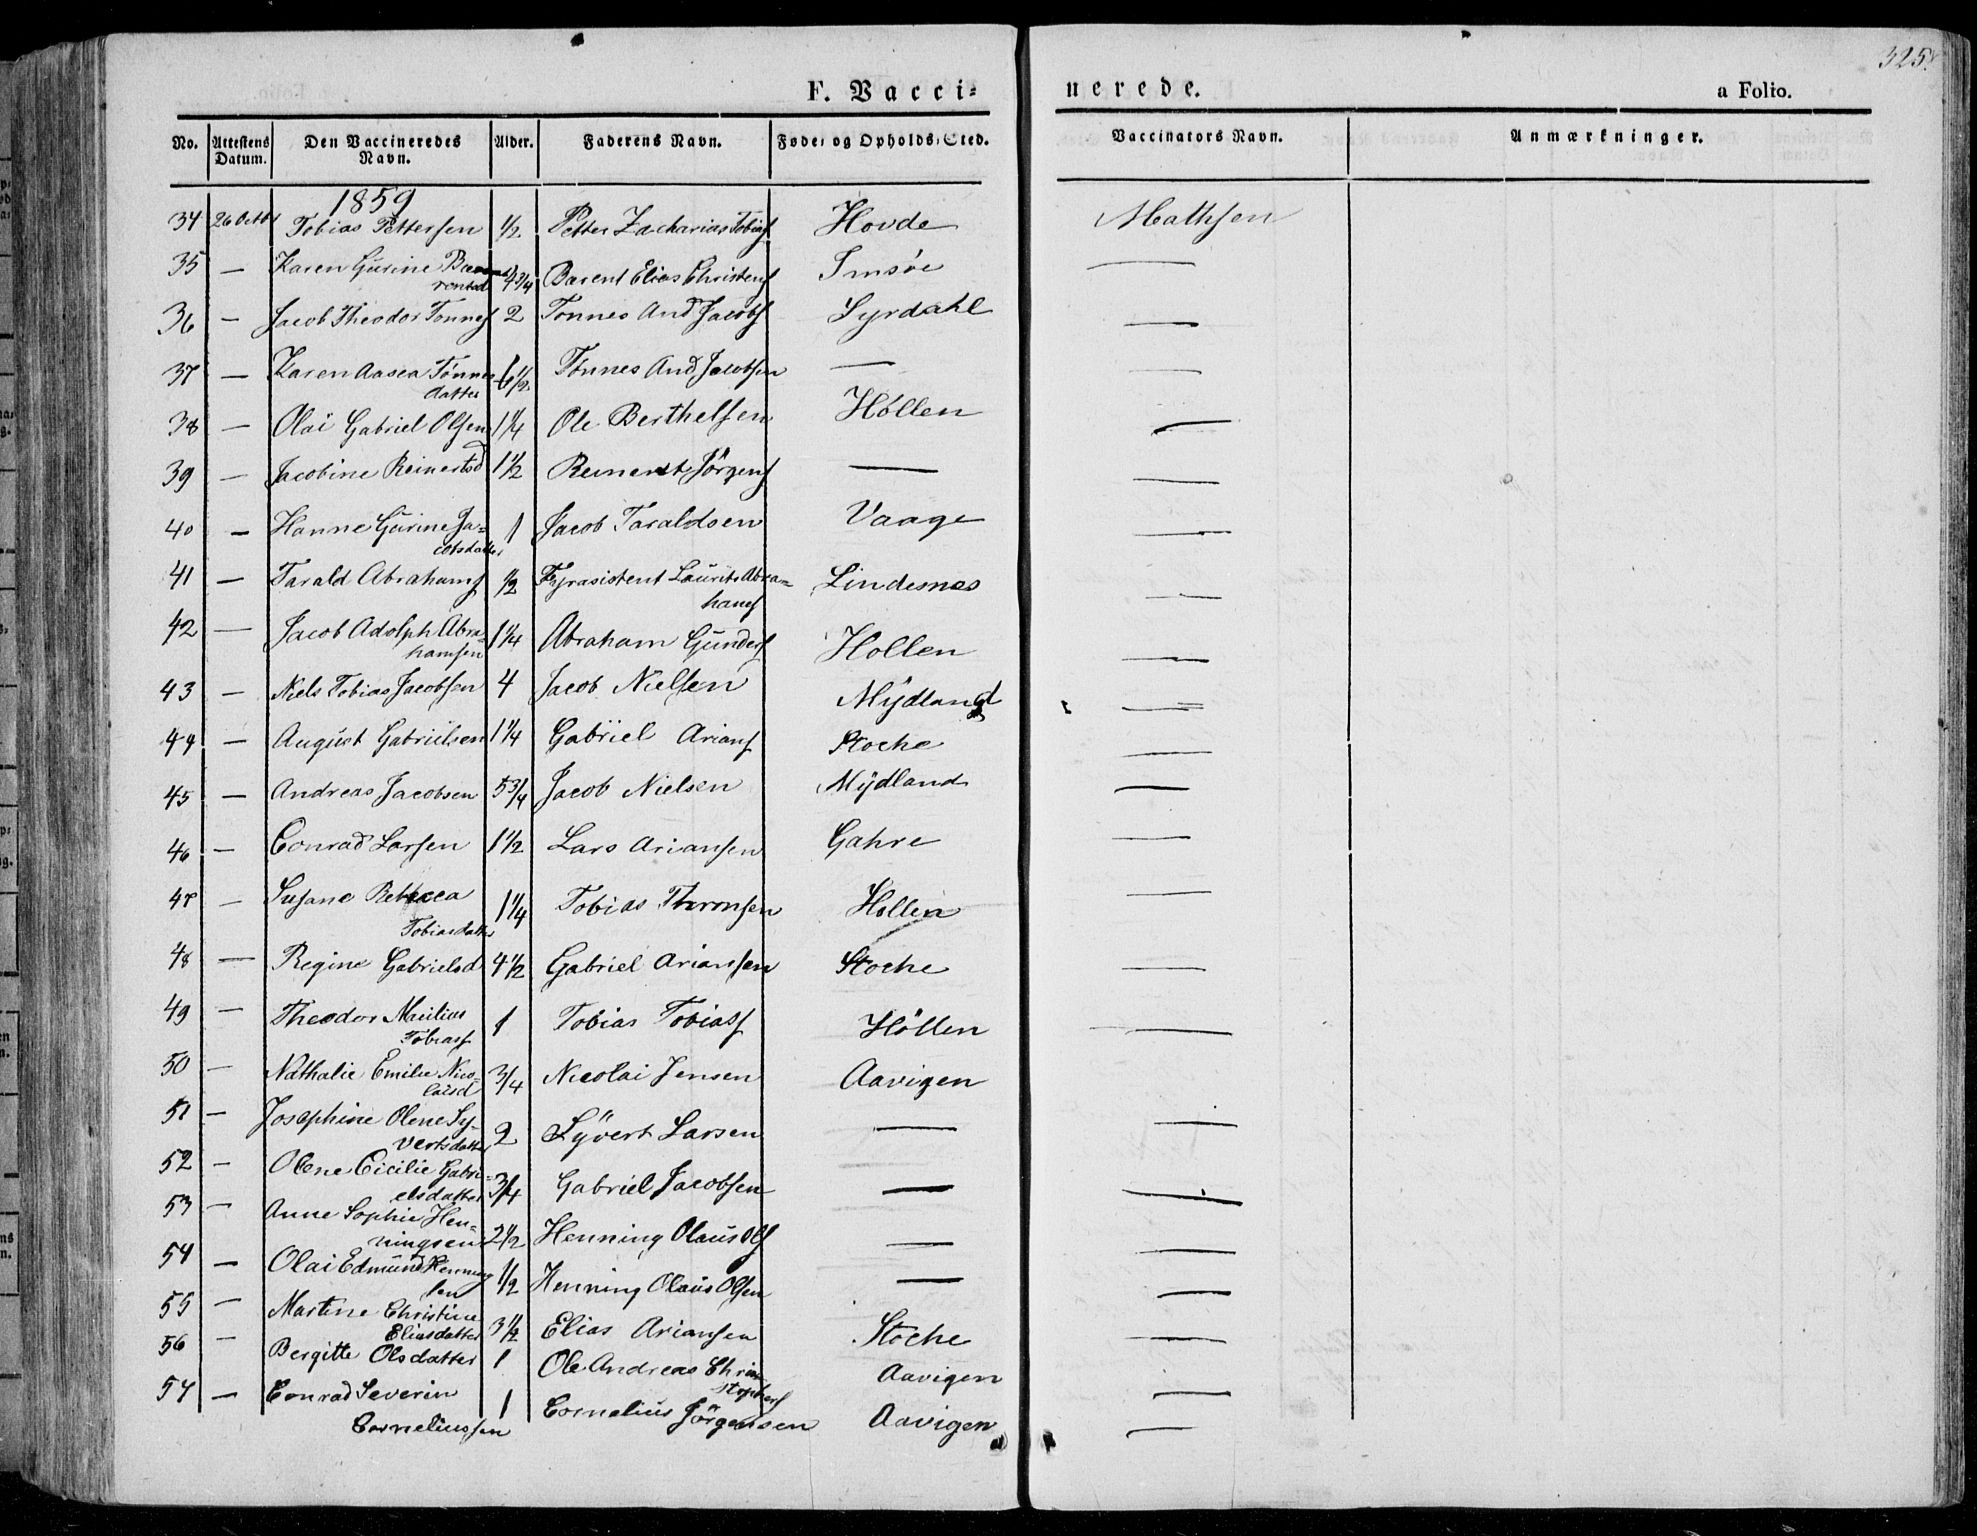 325.
F. Vacci=
nerede.
a Folio.
No. Attestens Datum. Den Vaccineredes Navn. Alder. Faderens Navn. Føde- og Opholds-Sted. Vaccinators Navn. Anmærkninger.
1859
34 26 Octb Tobias Pettersen 1/2 Petter Zacharias Tobiass Hovde Mathsen
35 — Karen Gurine Ba
rentsd 4 3/4 Barent Elias Christens Imsøe —
36 — Jacob Theodor Tønnes 2 Tonnes And Jacobs Syrdahl —
37 — Karen Aasea Tønnes
datter 6 1/2 Tønnes And Jacobsen — —
38 — Olai Gabriel Olsen 1 1/4 Ole Berthelsen Høllen —
39 — Jacobine Reinertsd 1 1/2 Reinert Jörgens — —
40 — Hanne Gurine Ja=
cobsdatter 1 Jacob Taraldsen Vaage —
41 — Tarald Abrahams 1/2 Fyrasistent Laurits Abra=
hams Lindesnes —
42 — Jacob Adolph Abra=
hamsen 1 1/4 Abraham Gunders Hollen —
43 — Niels Tobias Jacobsen 4 Jacob Nielsen Mÿdland —
44 — August Gabrielsen 1 1/4 Gabriel Arians Stoche —
45 — Andreas Jacobsen 5 3/4 Jacob Nielsen Mÿdland —
46 — Conrad Larsen 1 1/2 Lars Ariansen Gahre —
47 — Susane Rebecca
Tobiasdatter 1 1/4 Tobias Hollen —
48 — Regine Gabrielsd 4 1/2 Gabriel Ariansen Stoche —
49 — Theodor
Tobiass 1 Tobias Tobiass Höllen —
50 — Nathalie Emilie Nico=
laisd 3/4 Nicolai Jensen Aavigen
51 — Josephine Olene Sy=
vertsdatter 2 Syvert Larsen — —
52 — Olene Cicilie Gabri=
elsdatter 3/4 Gabriel Jacobsen — —
53 — Anne Sophie Hen=
ningsen 2 1/2 Henning Olaus Ols — —
54 — Olai Edmund Henning
sen 1/2 Henning Olaus Olsen — —
55 — Martine Christine
Eliasdatter 3 1/2 Elias Ariansen Stoche —
56 — Bergitte Olsdatter 1 Ole Andreas Chri
stophers Aavigen —
57 — Conrad Severin
Corneliussen 1 Cornelius Jörgensen Aavigen —